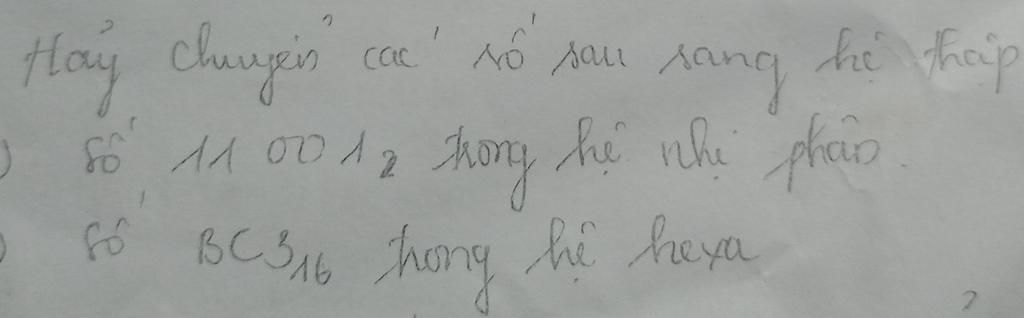 Hãy chuyển các số sau sang hệ thập
) số 11001₂ trong hệ nhị phân.
) số BC3₁₆ trong hệ hexa